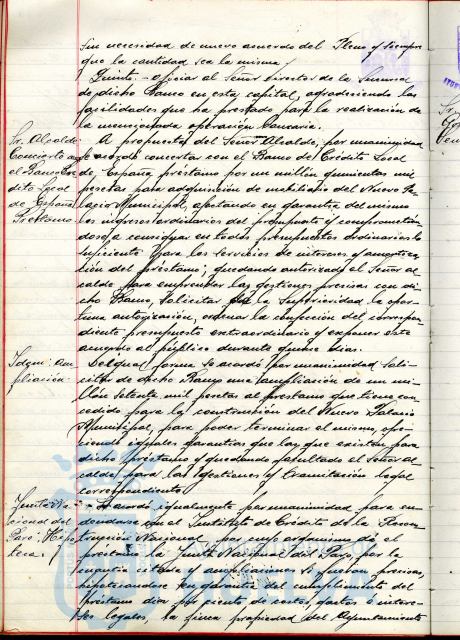 sin necesidad de nuevo acuerdo del Pleno y siempre
que la cantidad sea la misma
Quinto.- oficiar al Señor Director de la Sucursal
de dicho Banco en esta capital, agradeciendo las
facilidades que ha prestado para la realización de
la mencionada operación bancaria.
Sr. Alcalde
Concierto con
el Banco Cré
dito Local
de España
Préstamo.
A propuesta del Señor Alcalde, por unanimidad
se acordó concertar con el Banco de Crédito Local
de España préstamo por un millón quinientas mil
pesetas para adquisición de mobiliario del Nuevo Pa
lacio Municipal, afectando en garantía del mismo
los ingresos ordinarios del presupuesto y comprometién
dose a consignar en todos presupuestos ordinarios lo
suficiente para los servicios de intereses y amortiza
ción del préstamo; quedando autorizado el Señor al
calde para emprender las gestiones precisas con di
cho Banco, solicitar de la Superioridad la opor
tuna autorización, ordenar la confección del correspon
diente presupuesto extraordinario y exponer este
acuerdo al público durante quince días.
Idem: am
pliación:
De igual forma se acordó por unanimidad soli
citar de dicho Banco una ampliación de un mi
llón setenta mil pesetas al préstamo que tiene con
cedido para la construcción del Nuevo Palacio
Municipal, para poder terminar el mismo, ofre
ciendo iguales garantías que las que existen para
dicho préstamo y quedando facultado el señor al
calde para las gestiones y tramitación legal
correspondiente.
Junta Na
cional del
Paro: Hipo
teca.
Se acordó igualmente por unanimidad para
en el Instituto de Crédito de la Recons
trucción Nacional, por cuyo organismo dé el
préstamo la Junta Nacional del Paro, por la
cuantía citada y ampliaciones si fueran precisas,
hipotecándose en garantía del cumplimiento del
préstamo diez por ciento de costas, gastos e intere
ses legales, la finca propiedad del Ayuntamiento
HUELVA